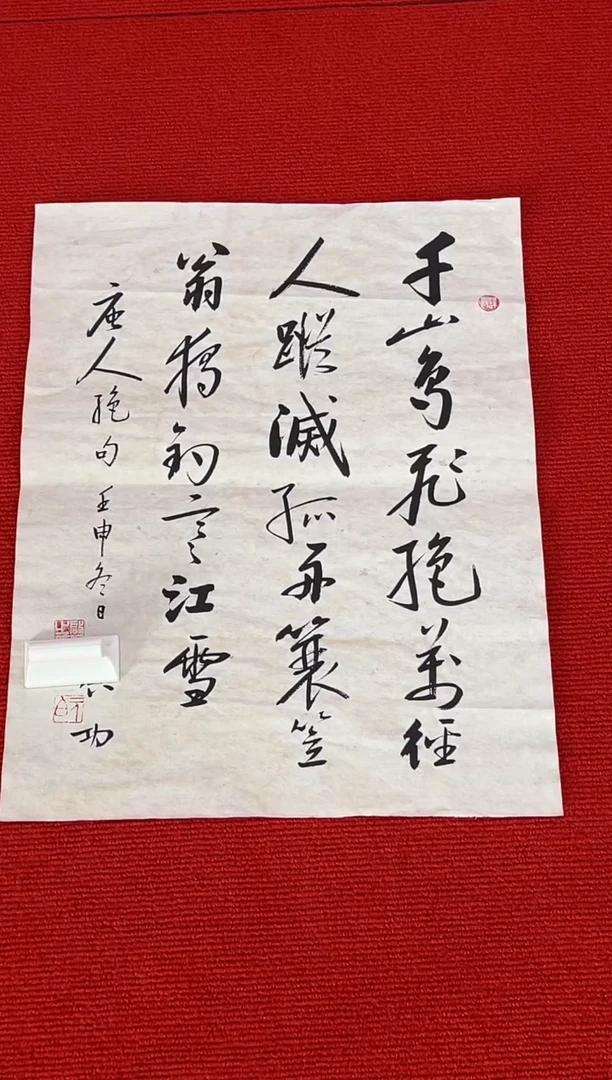 千山鳥飛絕萬徑
人蹤滅孤舟簑笠
翁獨釣寒江雪
唐人絕句 壬申冬日 功